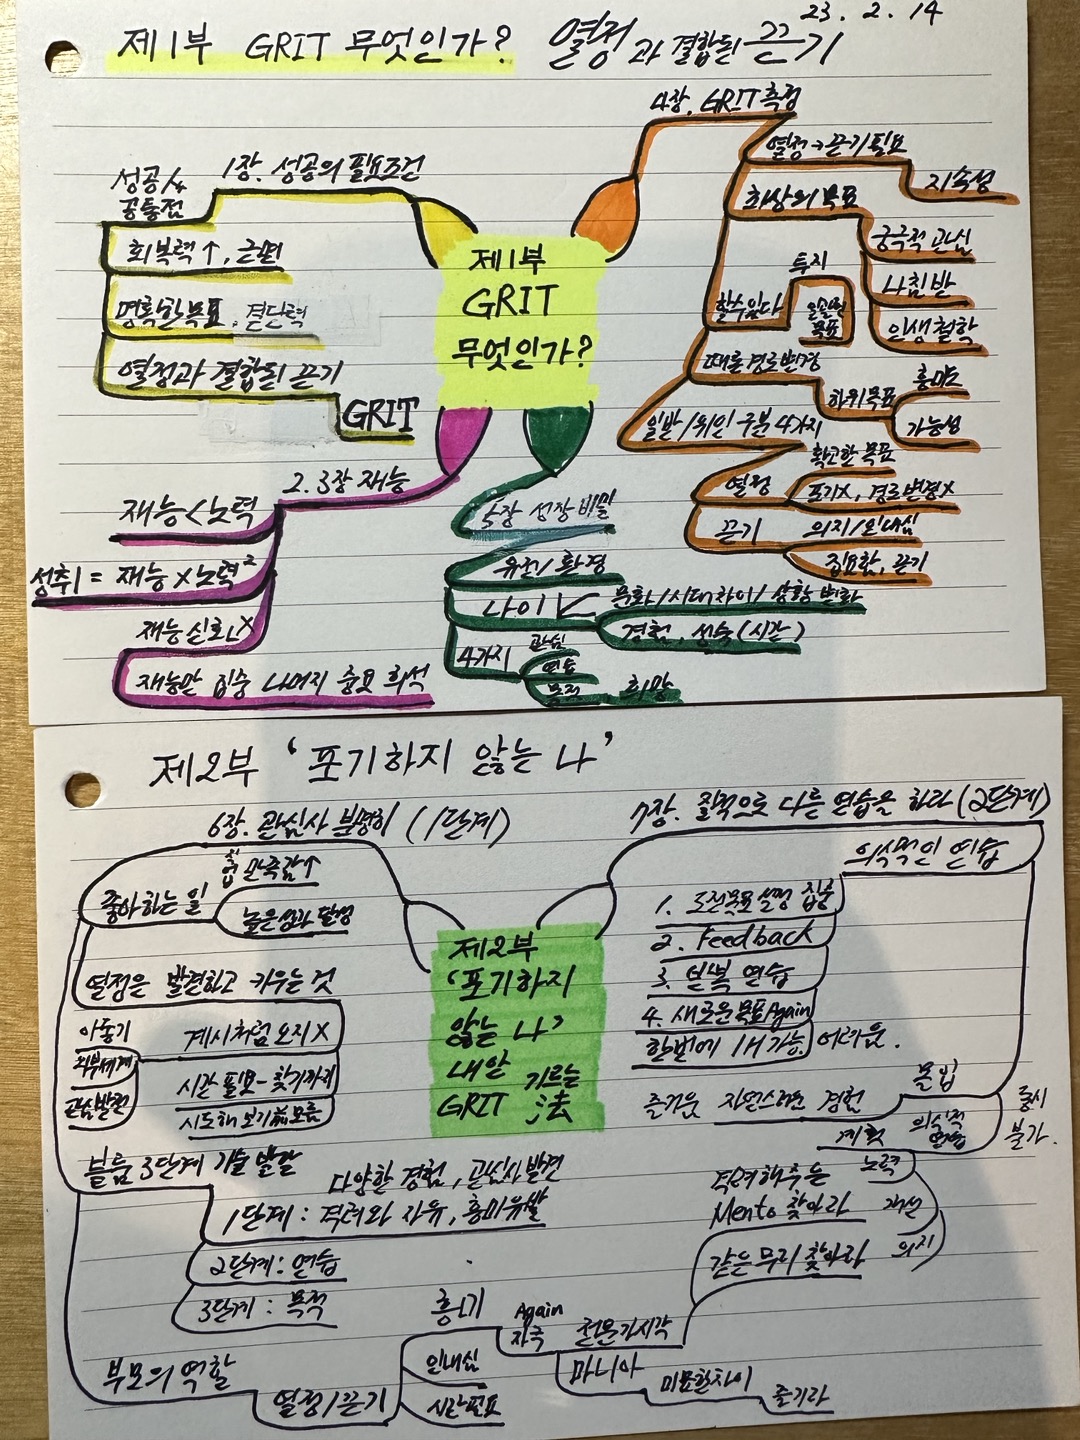 23. 2. 14
제1부 GRIT 무엇인가? 열정과 결합된 끈기
1장. 성공의 필요조건
성공人
공통점
회복력↑, 근면
명확한 목표, 결단력
열정과 결합된 끈기
GRIT
제1부
GRIT
무엇인가?
4장. GRIT 측정
열정→끈기 필요
지속성
최상의 목표
궁극적 관심
나침반
인생철학
투지
할수있다
목표
때론 경로변경
하위목표
흥미도
가능성
일반/위인 구분 4가지
열정
확고한 목표
포기X, 경로변경X
끈기
의지/인내심
집요함, 끈기
2.3장 재능
재능<노력
성취 = 재능×노력²
재능신화X
재능만 집중 나머지 중요 희석
5장 성장 비밀
유전/환경
나이
문화/시대차이/상황변화
경험, 성숙(시간)
4가지
관심
연습
목적
희망
제2부 '포기하지 않는 나'
6장. 관심사 분명히 (1단계)
좋아하는 일
직업 만족감↑
높은성과 달성
열정은 발견하고 키우는 것
계시처럼 오지X
시간 필요-찾기까지
시도해보기前모름
아동기
외부세계
관심발견
블룸 3단계 기술 발달
다양한 경험, 관심사 발견
1단계: 격려와 자유, 흥미유발
2단계: 연습
3단계: 목적
부모의 역할
열정/끈기
흥미
인내심
시간필요
Again
자극
전문가시각
마니아
미묘한차이
즐기라
제2부
'포기하지
않는 나'
내안 기르는
GRIT 法
7장. 질적으로 다른 연습을 하라 (2단계)
의식적인 연습
1. 도전목표설정 집중
2. Feedback
3. 반복 연습
4. 새로운목표Again
한번에 1개 가능 어려움.
몰입
즐거운 자연스러운 경험
의식적
연습
동시
불가.
계획
노력
개선
의지
격려해주는
Mento 찾아라
같은 무리 찾아라